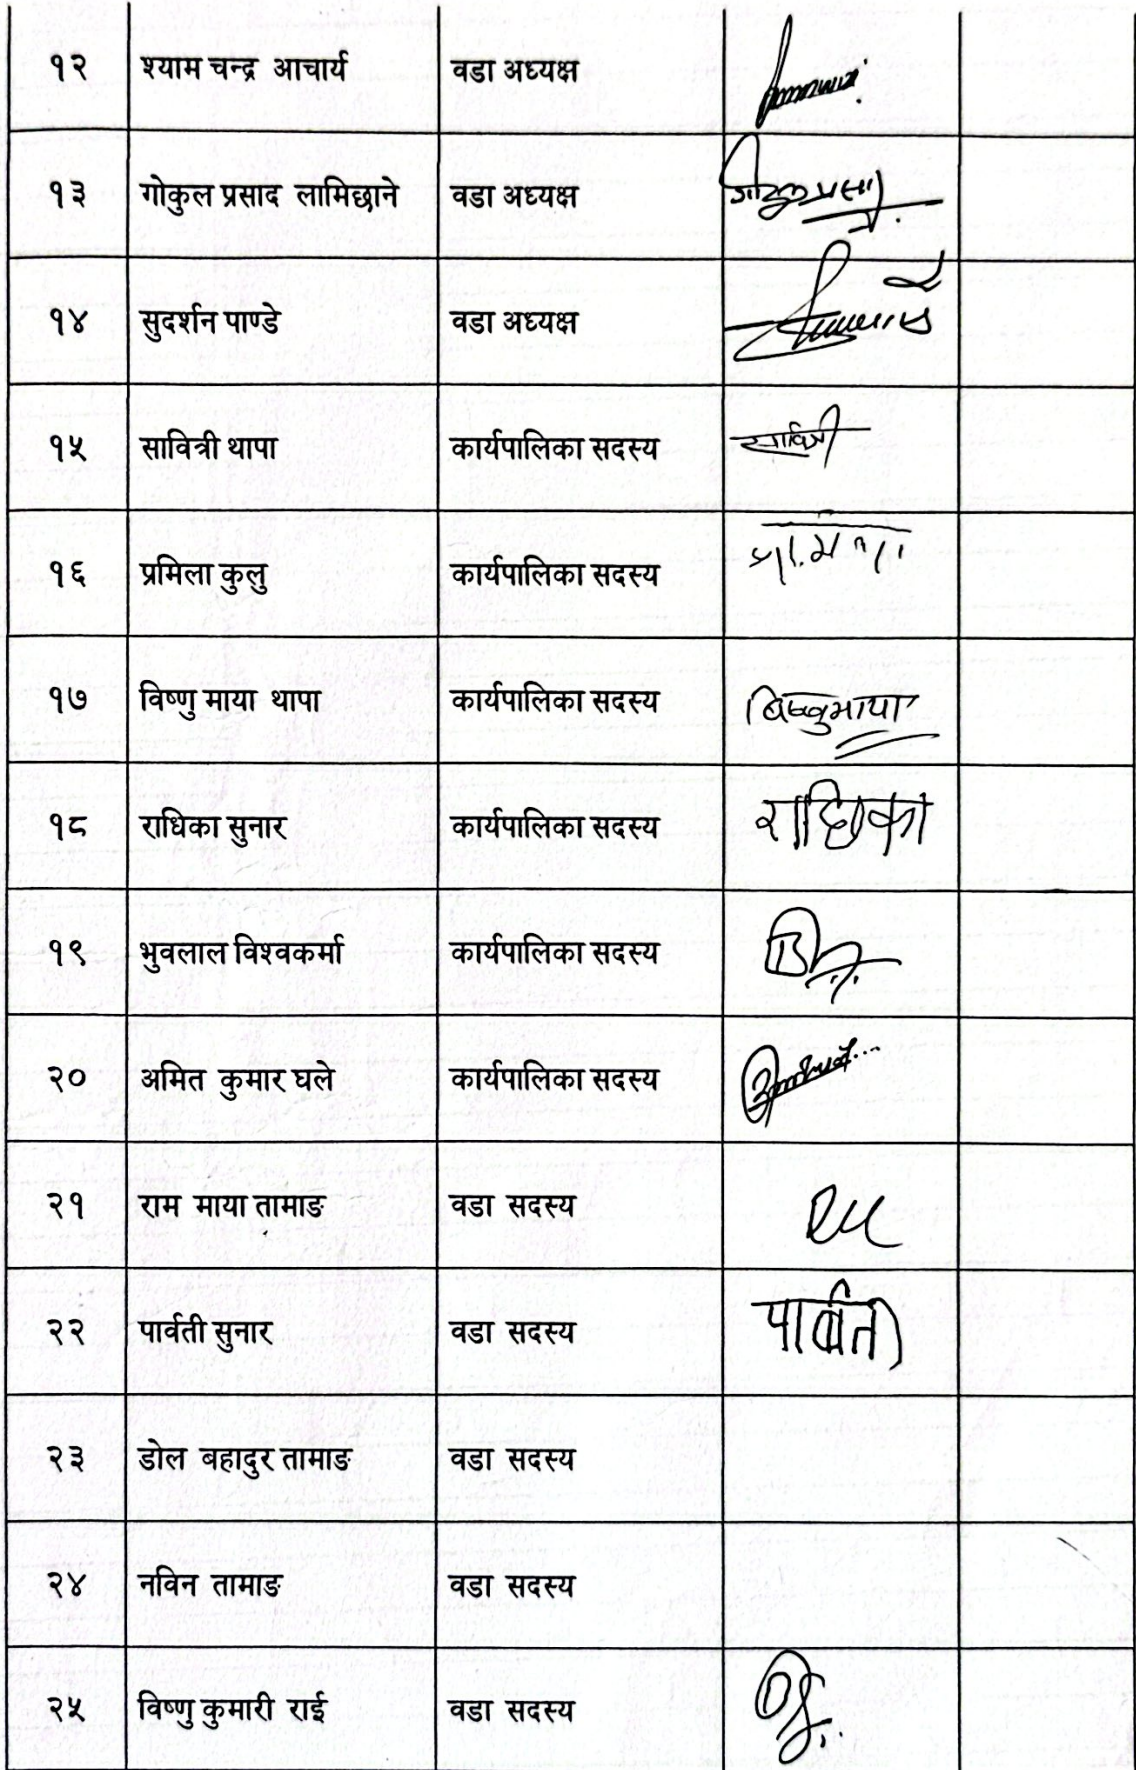 १२ श्याम चन्द्र आचार्य वडा अध्यक्ष
१३ गोकुल प्रसाद लामिछाने वडा अध्यक्ष गोकुल प्रसा
१४ सुदर्शन पाण्डे वडा अध्यक्ष
१५ सावित्री थापा कार्यपालिका सदस्य सावित्री
१६ प्रमिला कुलु कार्यपालिका सदस्य
१७ विष्णु माया थापा कार्यपालिका सदस्य बिष्णुमाया
१८ राधिका सुनार कार्यपालिका सदस्य राधिका
१९ भुवलाल विश्वकर्मा कार्यपालिका सदस्य
२० अमित कुमार घले कार्यपालिका सदस्य
२१ राम माया तामाङ वडा सदस्य
२२ पार्वती सुनार वडा सदस्य पार्वती
२३ डोल बहादुर तामाङ वडा सदस्य
२४ नविन तामाङ वडा सदस्य
२५ विष्णु कुमारी राई वडा सदस्य